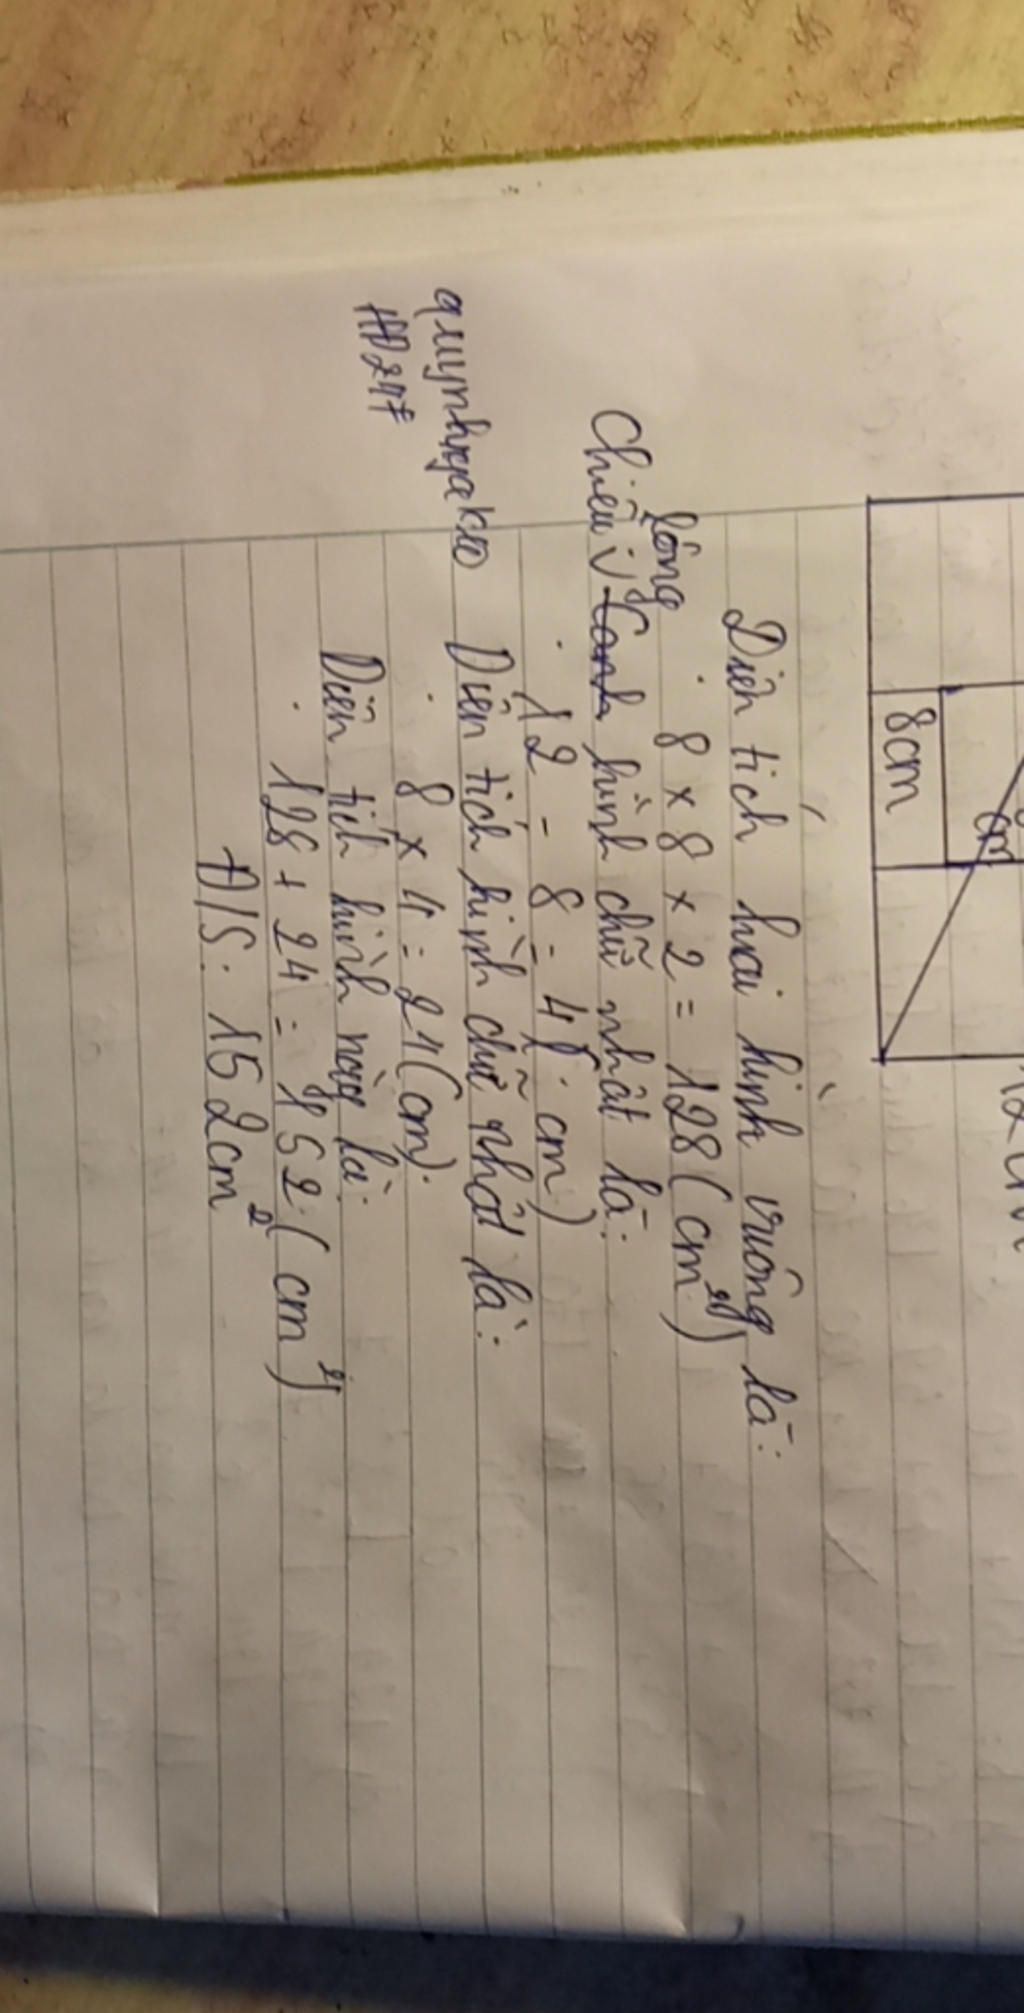 8cm
cm
Diện tích hai hình vuông là:
8 x 8 x 2 = 128 (cm²)
rông
Chiều hình chữ nhât là:
12 - 8 = 4 cm)
Diện tích hình chữ nhât là:
8 x 4 = 24 (cm)
Diện tích hình này là:
128 + 24 = 152 (cm²)
Đ/S: 152cm²